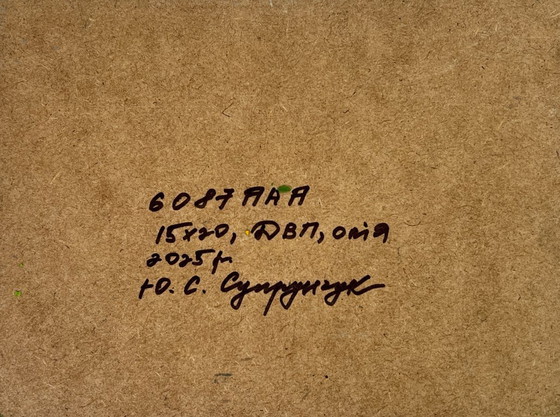 6087 ЯНА
15х20, ДВП, олія
2025р
Ю. С. Супрунчук